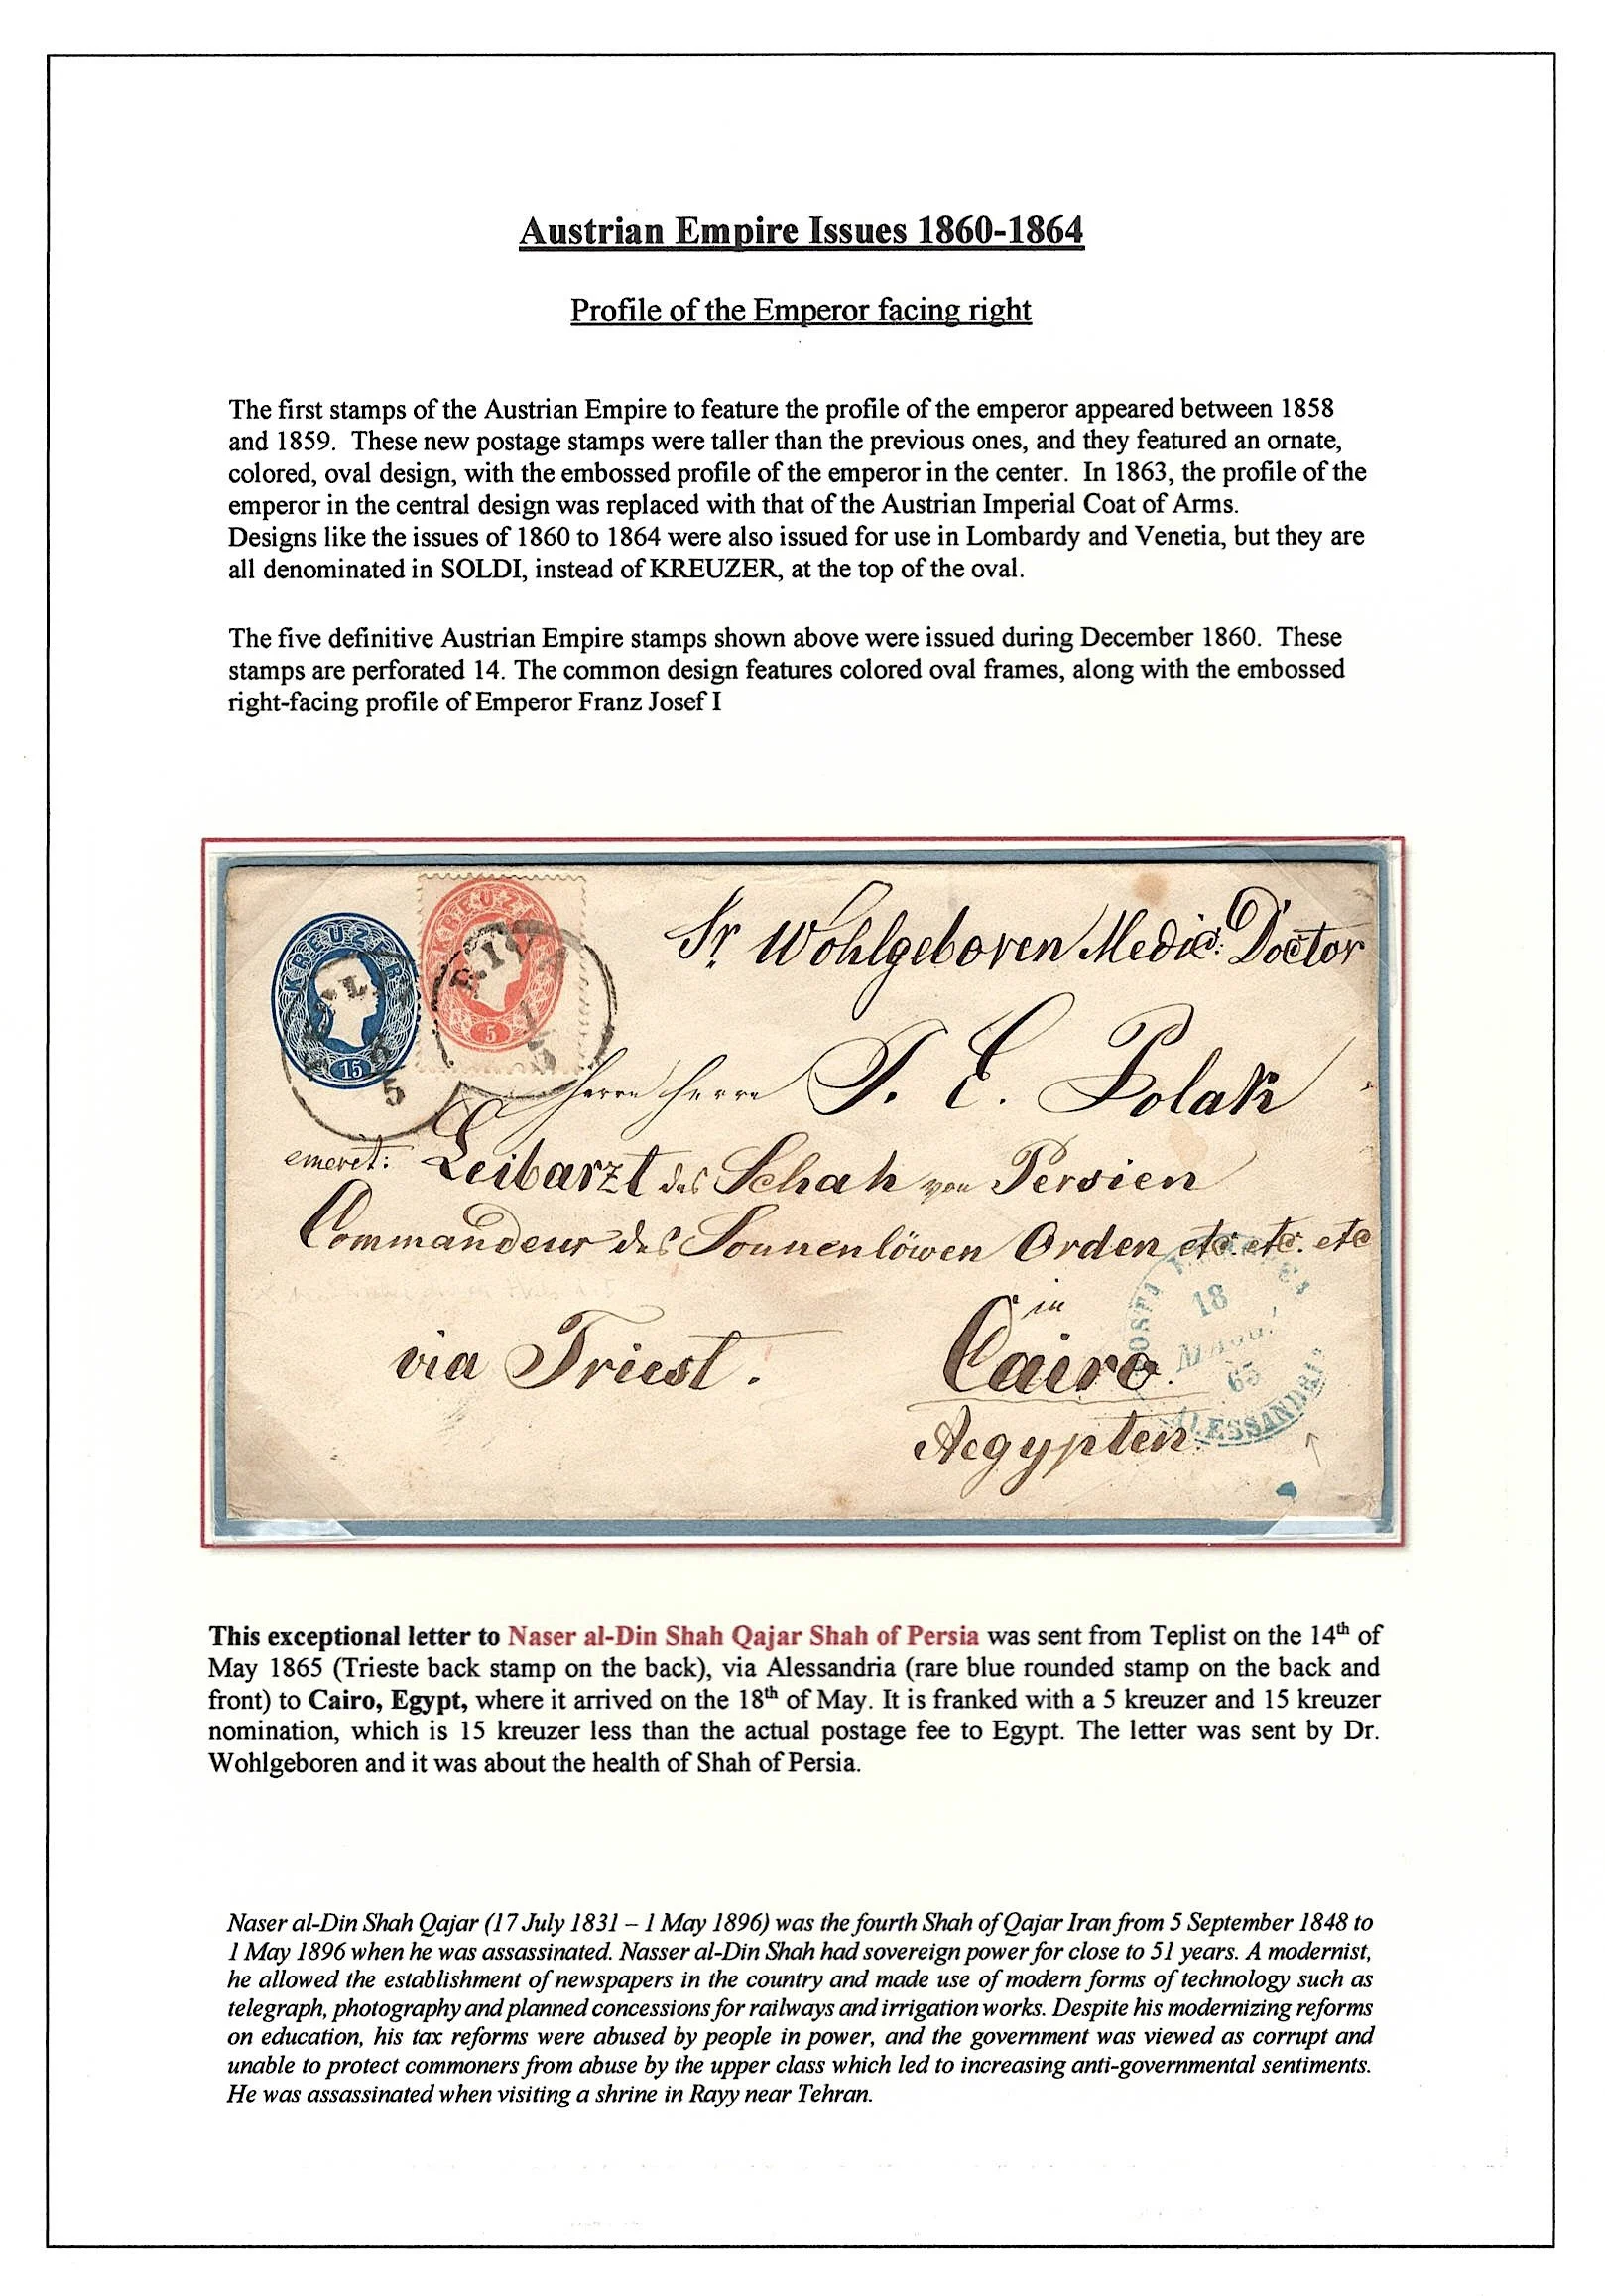 Austrian Empire Issues 1860-1864
Profile of the Emperor facing right
The first stamps of the Austrian Empire to feature the profile of the emperor appeared between 1858
and 1859. These new postage stamps were taller than the previous ones, and they featured an ornate,
colored, oval design, with the embossed profile of the emperor in the center. In 1863, the profile of the
emperor in the central design was replaced with that of the Austrian Imperial Coat of Arms.
Designs like the issues of 1860 to 1864 were also issued for use in Lombardy and Venetia, but they are
all denominated in SOLDI, instead of KREUZER, at the top of the oval.
The five definitive Austrian Empire stamps shown above were issued during December 1860. These
stamps are perforated 14. The common design features colored oval frames, along with the embossed
right-facing profile of Emperor Franz Josef I
KREUZER
15
5
KREUZER
5
Sr. Wohlgeboren Medic: Doctor
Herrn Herrn J. E. Polak
emeret: Leibarzt des Schah von Persien
Commandeur des Sonnenlöwen Orden etc. etc. etc
via Triest.
in
Cairo.
Aegypten
18
65
ALESSANDRIA
This exceptional letter to Naser al-Din Shah Qajar Shah of Persia was sent from Teplist on the 14th of
May 1865 (Trieste back stamp on the back), via Alessandria (rare blue rounded stamp on the back and
front) to Cairo, Egypt, where it arrived on the 18th of May. It is franked with a 5 kreuzer and 15 kreuzer
nomination, which is 15 kreuzer less than the actual postage fee to Egypt. The letter was sent by Dr.
Wohlgeboren and it was about the health of Shah of Persia.
Naser al-Din Shah Qajar (17 July 1831 – 1 May 1896) was the fourth Shah of Qajar Iran from 5 September 1848 to
1 May 1896 when he was assassinated. Nasser al-Din Shah had sovereign power for close to 51 years. A modernist,
he allowed the establishment of newspapers in the country and made use of modern forms of technology such as
telegraph, photography and planned concessions for railways and irrigation works. Despite his modernizing reforms
on education, his tax reforms were abused by people in power, and the government was viewed as corrupt and
unable to protect commoners from abuse by the upper class which led to increasing anti-governmental sentiments.
He was assassinated when visiting a shrine in Rayy near Tehran.